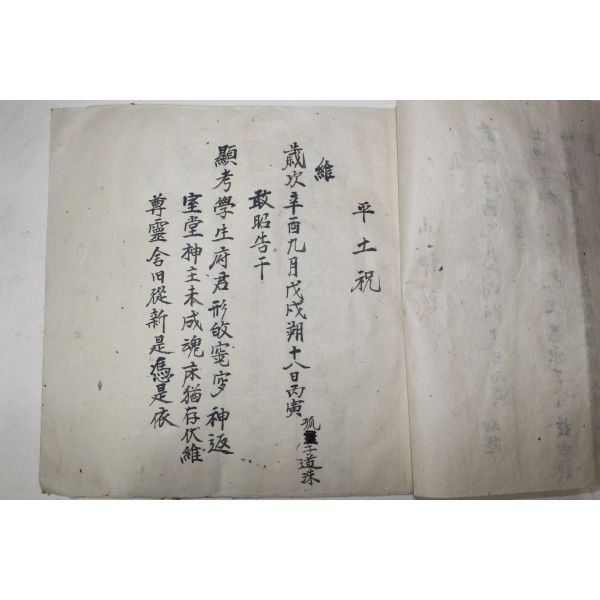 平土祝
維
歲次辛酉九月戊戌朔十八日丙寅
孤子道洙
敢昭告于
顯考學生府君形皈窀穸神返
室堂神主未成魂床猶存伏維
尊靈舍旧從新是憑是依